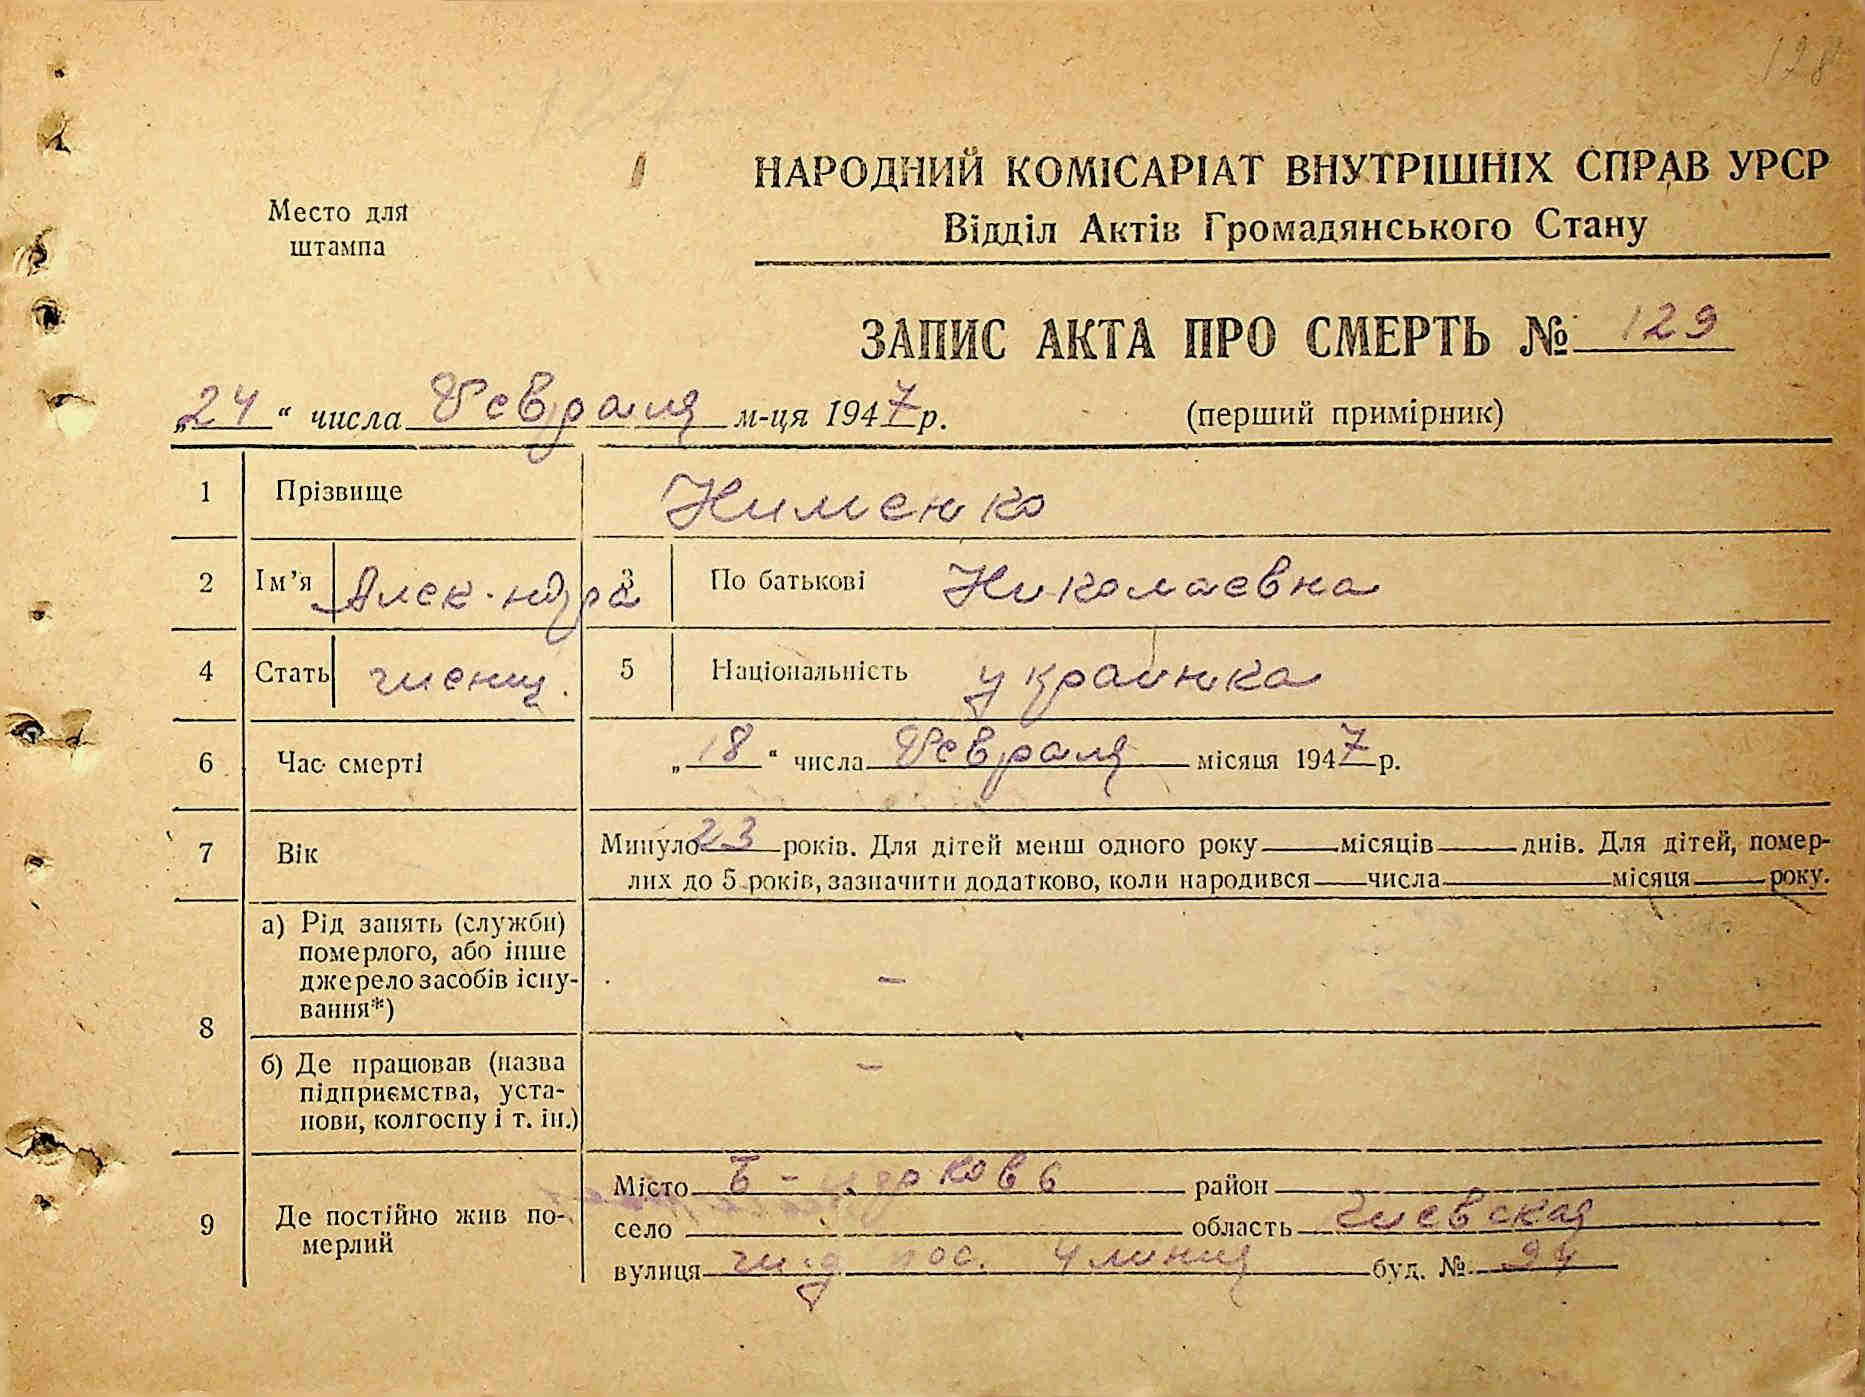 128
127
НАРОДНИЙ КОМІСАРІАТ ВНУТРІШНІХ СПРАВ УРСР
Место для
штампа
Відділ Актів Громадянського Стану
ЗАПИС АКТА ПРО СМЕРТЬ № 129
„24“ числа Февраля м-ця 1947 р. (перший примірник)
1 Прізвище Нименко
2 Ім’я Алек-ндра 3 По батькові Николаевна
4 Стать женщ. 5 Національність украинка
6 Час смерті „18“ числа Февраля місяця 1947 р.
7 Вік Минуло 23 років. Для дітей менш одного року місяців днів. Для дітей, помер-
лих до 5 років, зазначити додатково, коли народився числа місяця року.
8 а) Рід занять (служби)
померлого, або інше
джерело засобів існу-
вання*) -
б) Де працював (назва
підприємства, уста-
нови, колгоспу і т. ін.) -
9 Де постійно жив по-
мерлий
Місто Б-церковь район
село область Киевская
вулиця ж.д. пос. 4 линия буд. № 94